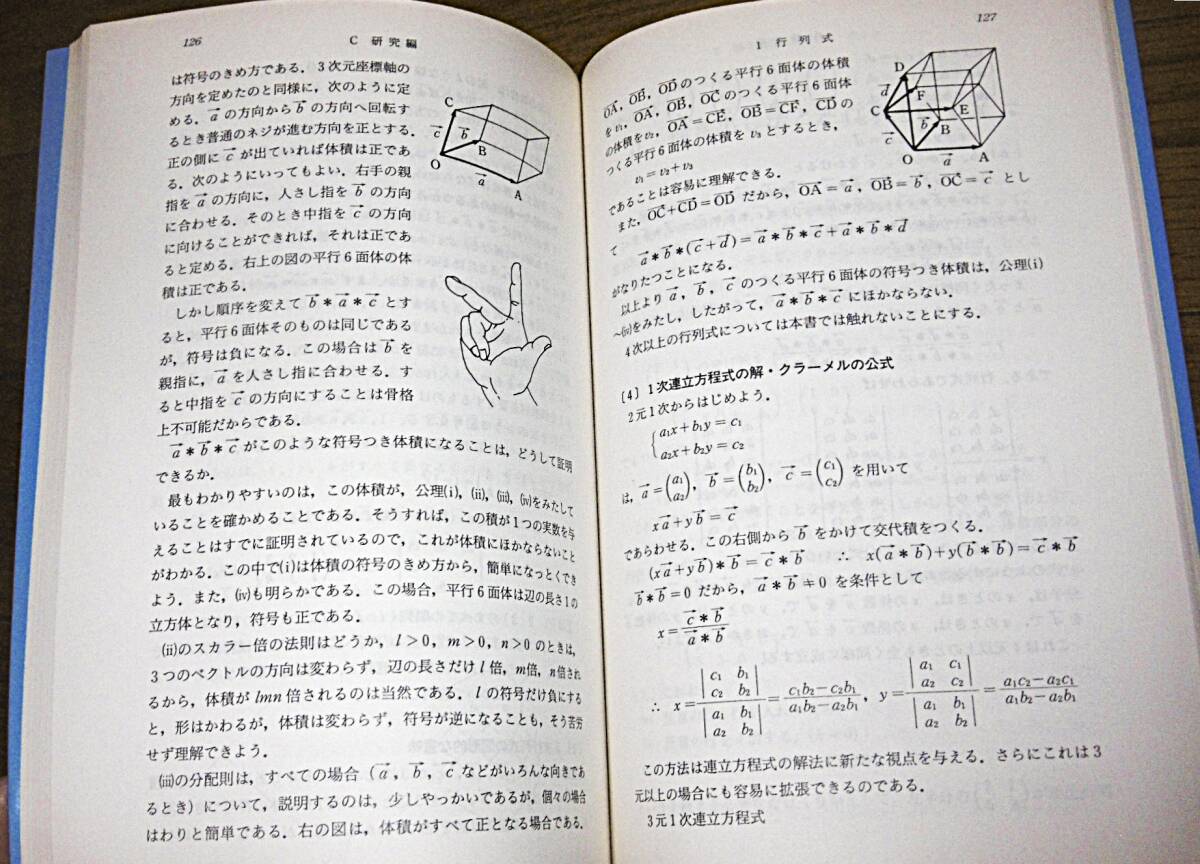 126
C 研究編
は符号のきめ方である．3次元座標軸の
方向を定めたのと同様に，次のように定
める．a→の方向からb→の方向へ回転す
るとき普通のネジが進む方向を正とする．
正の側にc→が出ていれば体積は正であ
る．次のようにいってもよい．右手の親
指をa→の方向に，人さし指をb→の方向
に合わせる．そのとき中指をc→の方向
に向けることができれば，それは正であ
ると定める．右上の図の平行6面体の体
積は正である．
C
c→
b→
B
O
a→
A
しかし順序を変えてb→*a→*c→とす
ると，平行6面体そのものは同じである
が，符号は負になる．この場合はb→を
親指に，a→を人さし指に合わせる．す
ると中指をc→の方向にすることは骨格
上不可能だからである．
a→*b→*c→がこのような符号つき体積になることは，どうして証明
できるか．
最もわかりやすいのは，この体積が，公理(i)，(ii)，(iii)，(iv)をみたして
いることを確かめることである．そうすれば，この積が1つの実数を与
えることはすでに証明されているので，これが体積にほかならないこと
がわかる．この中で(i)は体積の符号のきめ方から，簡単になっとくでき
よう．また，(iv)も明らかである．この場合，平行6面体は辺の長さ1の
立方体となり，符号も正である．
(ii)のスカラー倍の法則はどうか，l＞0，m＞0，n＞0のときは，
3つのベクトルの方向は変わらず，辺の長さだけl倍，m倍，n倍され
るから，体積がlmn倍されるのは当然である．lの符号だけ負にする
と，形はかわるが，体積は変わらず，符号が逆になることも，そう苦労
せず理解できよう．
(iii)の分配則は，すべての場合（a→，b→，c→などがいろんな向きであ
るとき）について，説明するのは，少しやっかいであるが，個々の場合
はわりと簡単である．右の図は，体積がすべて正となる場合である．
127
1 行列式
OA→，OB→，OD→のつくる平行6面体の体積
をv₁，OA→，OB→，OC→のつくる平行6面体
の体積をv₂，OA→=CE→，OB→=CF→，CD→の
つくる平行6面体の体積をv₃とするとき，
v₁=v₂+v₃
であることは容易に理解できる．
D
d→
F
C
E
c→
b→
B
O
a→
A
また，OC→+CD→=OD→だから，OA→=a→，OB→=b→，OC→=c→とし
て a→*b→*(c→+d→)=a→*b→*c→+a→*b→*d→
がなりたつことになる．
以上よりa→，b→，c→のつくる平行6面体の符号つき体積は，公理(i)
～(iv)をみたし，したがって，a→*b→*c→にほかならない．
4次以上の行列式については本書では触れないことにする．
〔4〕1次連立方程式の解・クラーメルの公式
2元1次からはじめよう．
{a₁x+b₁y=c₁
a₂x+b₂y=c₂
は，a→=(a₁ a₂)，b→=(b₁ b₂)，c→=(c₁ c₂)を用いて
xa→+yb→=c→
であらわせる．この右側からb→をかけて交代積をつくる．
(xa→+yb→)*b→=c→*b→ ∴ x(a→*b→)+y(b→*b→)=c→*b→
b→*b→=0だから，a→*b→≠0を条件として
x=(c→*b→)/(a→*b→)
∴ x=|c₁ b₁ c₂ b₂|/|a₁ b₁ a₂ b₂|=(c₁b₂−c₂b₁)/(a₁b₂−a₂b₁)，y=|a₁ c₁ a₂ c₂|/|a₁ b₁ a₂ b₂|=(a₁c₂−a₂c₁)/(a₁b₂−a₂b₁)
この方法は連立方程式の解法に新たな視点を与える．さらにこれは3
元以上の場合にも容易に拡張できるのである．
3元1次連立方程式